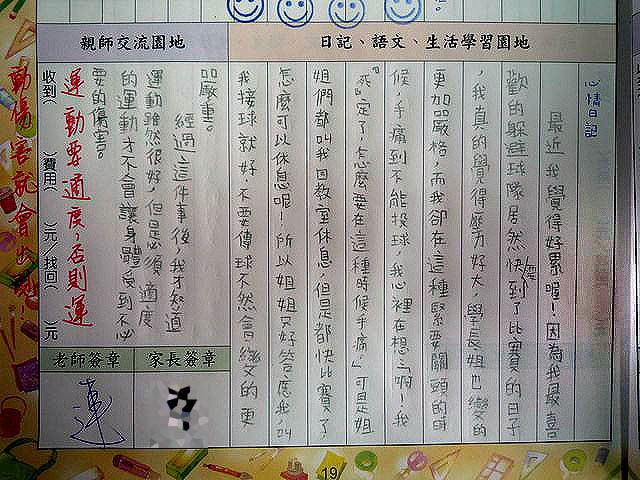 親師交流園地
日記、語文、生活學習園地
心情日記
最近我覺得好累喔!因為我最喜
歡的躲避球隊居然快要到了比賽的日子
,我真的覺得壓力好大,學長姐也變的
更加嚴格,而我卻在這種緊要關頭的時
候,手痛到不能投球,我心裡在想:「啊!我
『死』定了,怎麼要在這種時候手痛。」可是姐
姐們都叫我回教室休息,但是都快比賽了,
怎麼可以休息呢!所以姐姐只好答應我,叫
我接球就好,不要傳球不然會變的更
嚴重。
經過這件事後,我才知道
運動雖然很好,但是必須適度
的運動才不會讓身體受到不必
要的傷害。
運動要適度,否則運
動傷害就會出現!
收到( )費用( )元/找回( )元
老師簽章
家長簽章
19